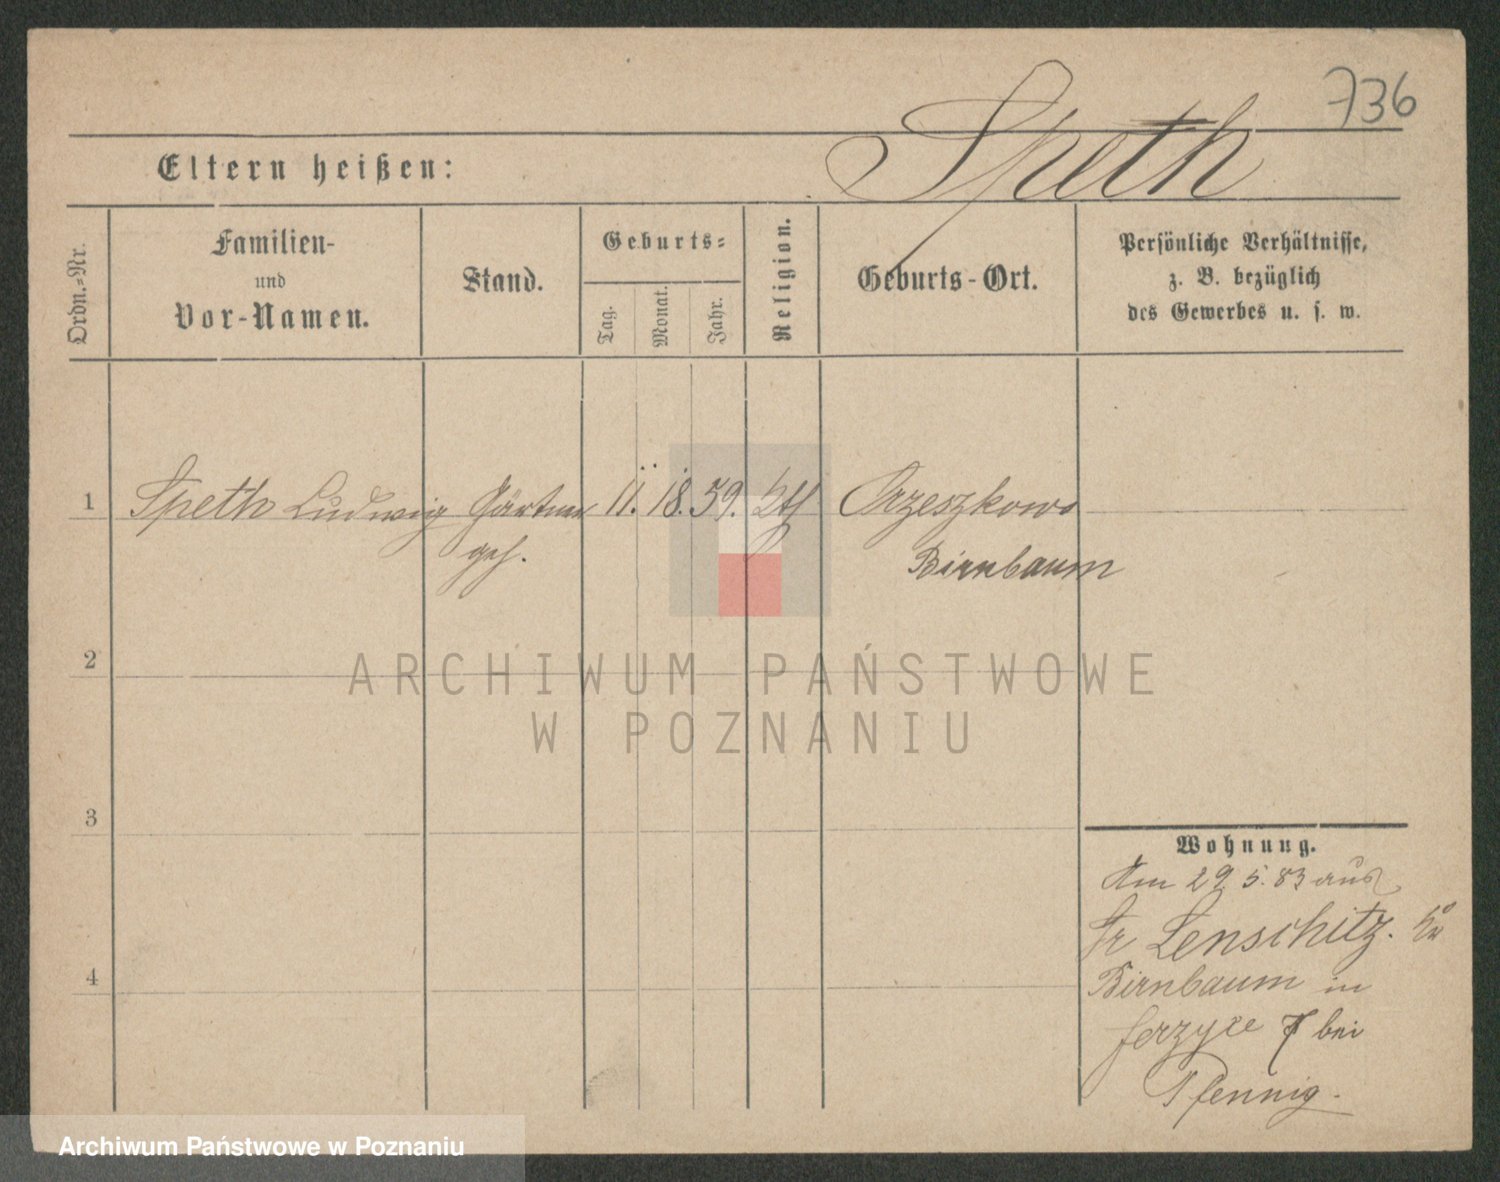 736
Speth
Eltern heißen:
Ordn.-Nr.
Familien-
und
Vor-Namen.
Stand.
Geburts-
Tag.
Monat.
Jahr.
Religion.
Geburts-Ort.
Persönliche Verhältnisse,
z. B. bezüglich
des Gewerbes u. s. w.
1 Speth Ludwig Gärtner 11. 18. 59. Orzeszkowo
geh. Birnbaum
2
ARCHIWUM PAŃSTWOWE
W POZNANIU
3
Wohnung.
Am 29. 5. 83 aus
Gr Lenschitz.
4
Birnbaum in
Jerzyce 7 bei
Pfennig.
Archiwum Państwowe w Poznaniu